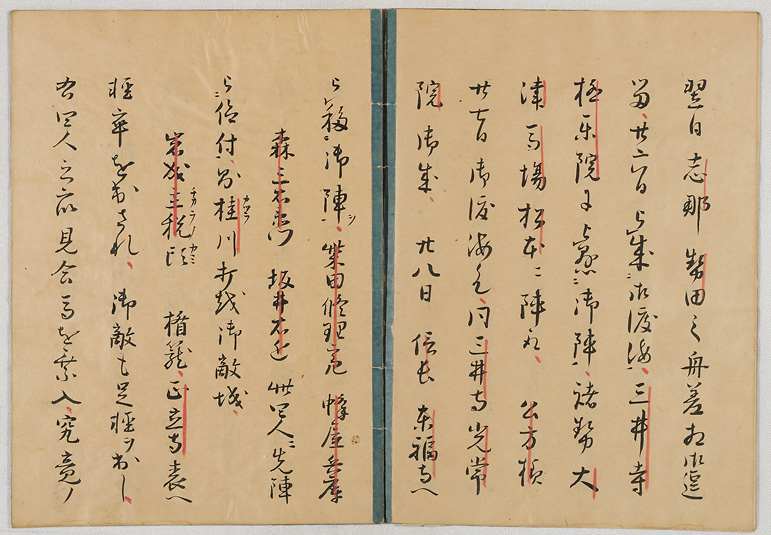 翌日志那勢田之舟差相御逗
留、廿六日被成御渡海、三井寺
極楽院に被懸御陣、諸勢大
津馬場松本ニ陣取、公方様
廿七日御渡海候て、同三井寺光常
院御成、廿八日信長東福寺へ
被移御陣ヲ、柴田修理亮 蜂屋兵庫
森三左衛門 坂井右近 此四人ニ先陣
被仰付、則桂川打越御敵城、
岩成主税頭 楯籠、正立寺表へ
軽卒を出され、御敵も足軽ヲ出し、
右四人之衆見合馬を乗入、究竟ノ